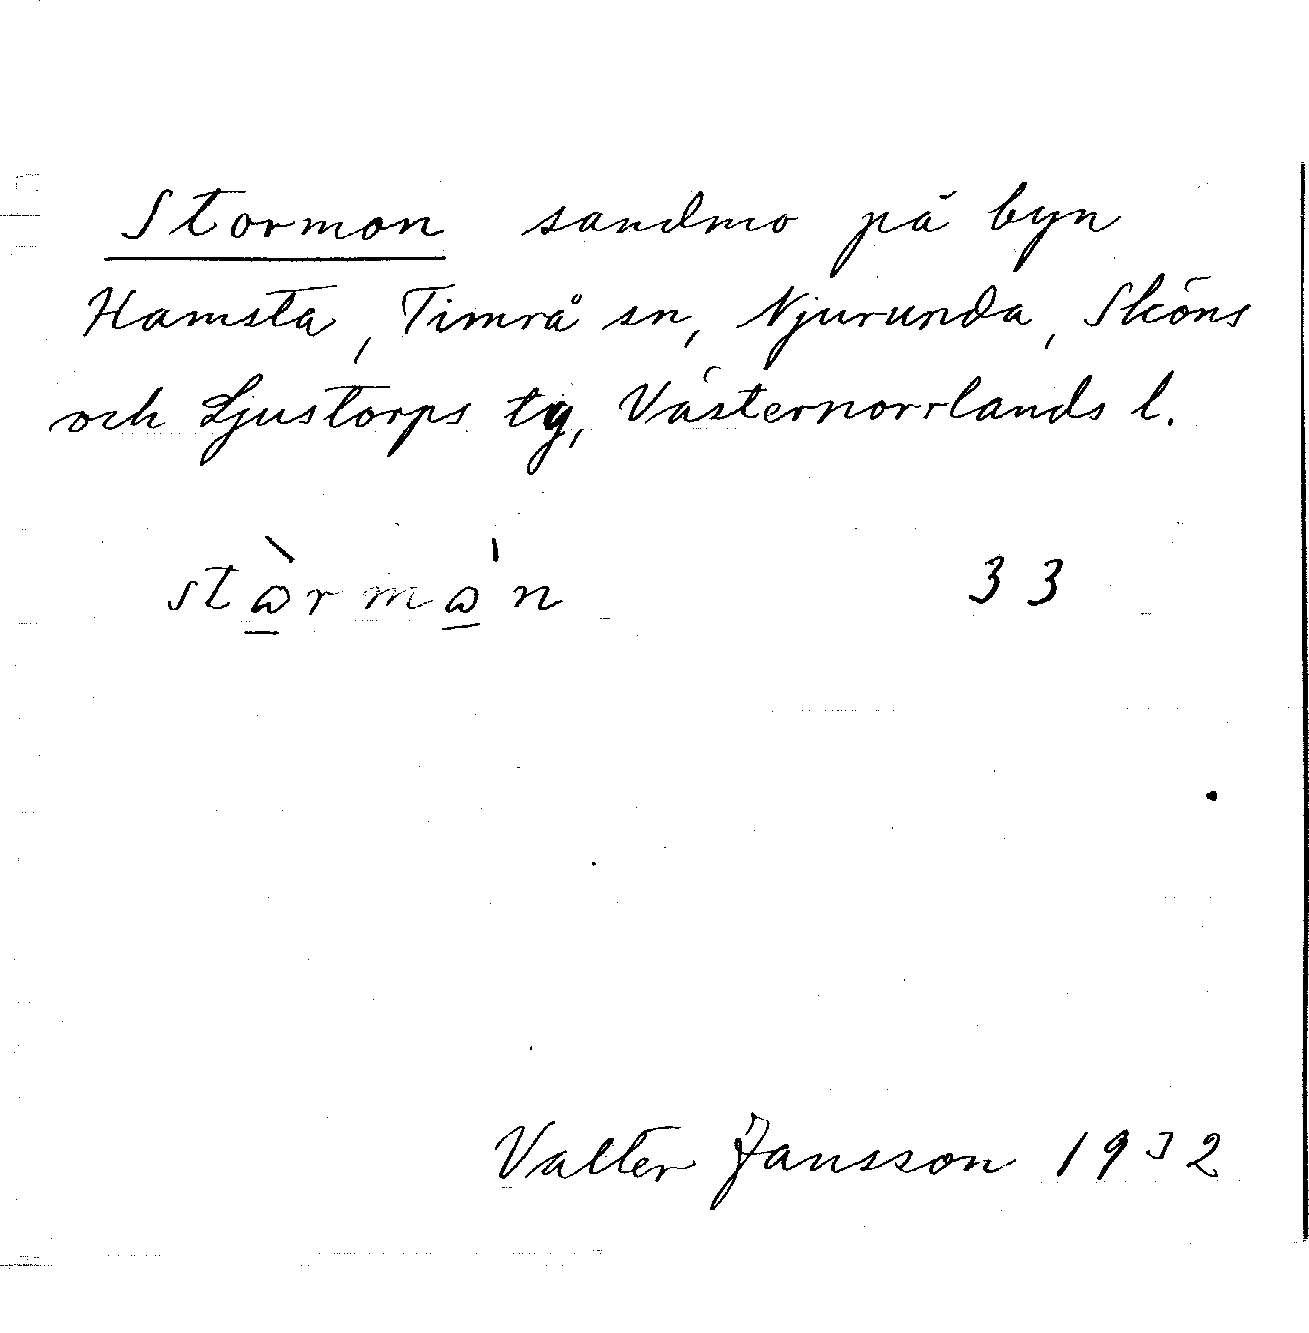 Stormon sandmo på byn
Hamsta, Timrå sn, Njurunda, Sköns
och Ljustorps tg, Västernorrlands l.
stɷ̠̀rmɷ̠̍n 33
Valter Jansson 1932